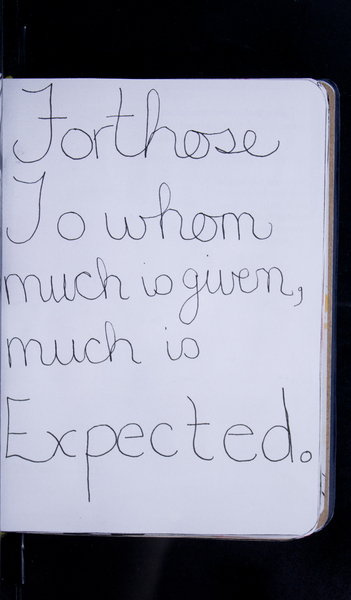 For those
To whom
much is given,
much is
Expected.